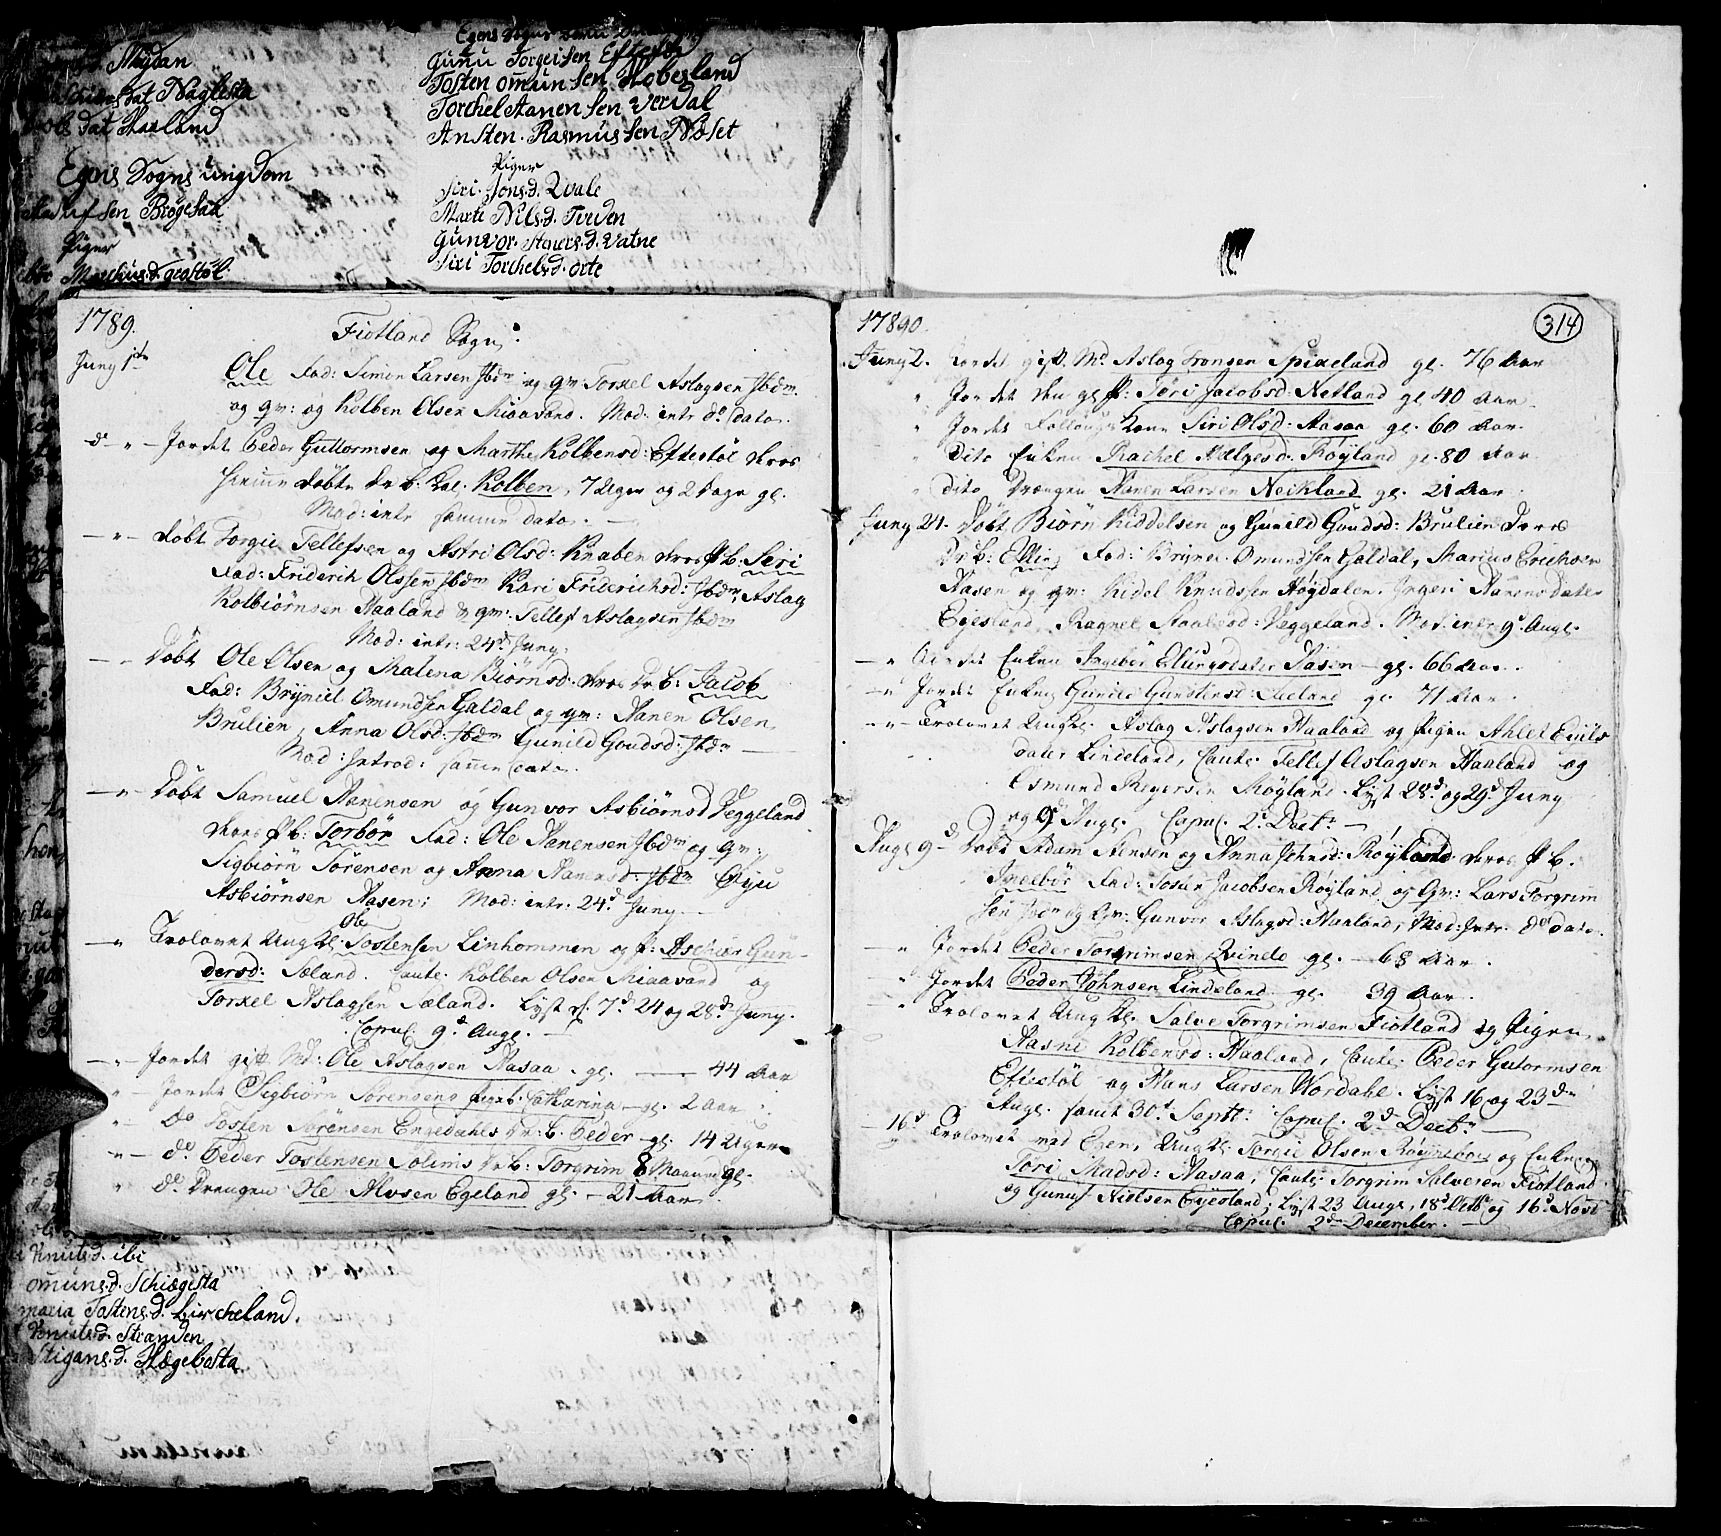 Mydan
dat Nøglesta
dat Haaland
Egens Sogns ungdom
sen Brøgesaa
Piger
Marchus.d. geostøl
Gunu Torgeisen Eftestøl
Tosten omunsen Hobesland
Torchel Aanensen Verdal
Ansten. Rasmussen Nøset
Piger
Siri. Jons.d. Qvale
Marte Nils.d. Tveden
Gunvor. Steners.d. Vatne
Siri Torchels.d. Orte
1789.
Fiotland Sogn:
Juny 1ste
Ole Fad: Simon Larsen Ibdm og qv: Torkel Aslagsen Ibdm.
og qv: og Kolben Olsen Kiaavand. Mod. intr do dato.
do " Jordet Peder Guttormsen og Marthe Kolbensd: Eftestøl deres
hiemme døbte dr. b. kal. Kolben, 7 Uger og 2 dage gl.
Mod: intr samme dato.
— " — Døbt Torgie Tellefsen og Astri Olsd: Knaben deres p b: Seri
Fad: Friderich Olssen Ibdm Kari Friderichsd: Ibdm, Aslag
Kolbiørnsen Haaland & qv: Tellef Aslagsen Ibdm
Mod: intr: 24d Juny.
— " Døbt Ole Olsen og Malena Biørnsd. deres dr b: Jacob
Fad: Bryniel Omundsen Galdal og qv: Aanen Olsen
Brulien, Anna Olsd: Ibdm Gunild Goudsd: Ibdm —
Mod: Introd: samme dato.
— " — Døbt Samuel Aanensen og Gunvor Asbiørnsd Veggeland
deres p b: Torbør Fad: Ole Aanensen Ibdm og qv:
Sigbiørn Sørensen og Anna Aanensd: Ibdm
Asbiørnsen Aasen; Mod: intr: 24d Juny —
Ole
— " Trolovet Ungkl. Tostensen Linhommen og p: Aschier Gun-
dersd: Sæland. Caute. Kolben Olsen Kiaavand og
Torkel Aslagsen Sæland. Lyst 7d 24 og 28de Juny.
Copul. 9d Aug. —
— " — Jordet gift Md: Ole Aslagsen Aasaa. gl. — 44 Aar
" — Jordet Sigbiørn Sørensens pigeb. Catharina — gl. 2 Aar
" — do Tosten Sørensen Engedahls dr: b. Peder — gl. 14 Uger
" — do Peder Tostensen Solimis dr b: Torgrim 8 Maaneder gl.
" do Drengen Ole Alvsen Egeland gl. — 21 Aar.
17890.
314
Juny 2. Jordet gift Md Aslag Tronsen Spixeland gl. 76 Aar
" Jordet den gl p: Tøri Jacobsd: Netland gl 40 Aar.
" Jordet Kone Siri Olsd: Aasaa gl. 60 Aar.
" Dito Enken Rachel Helgesd. Røyland gl. 80 Aar
" Dito Drengen Aanen Larsen Neikland gl. 21 Aar
Juny 24. Døbt Biørn Kiddelsen og Gunild Goudsd: Brulien deres
dr b: Ellin Fad: Brynel Omundsen Galdal, Marcus Erichsen
Aasen og qv: Kidel Knudssen Høydalen. Ingeri Aanens dater
Egesland, Ragnel Staalesd: Veggeland. Mod. intr 9d Aug.
— " Jordet Enken Ingebør Elungsdater Aasen — gl. 66 Aar.
— " Jordet Enken Gunild Gunstensd: gl. 71 Aar
— " — Trolovet Ungkl. Aslag Aslagsen Haaland og Pigen Ahlet Emils
dater Lindeland, Caute. Tellef Aslagsen Haaland og
Osmund Reyersen Røyland. Lyst 28d og 29d Juny
og 9d Aug. Copul. 2d Dectr —
Aug 9d — Døbt Adam Ansen og Anna Johnsd: Røyland deres p b.
Ingebør Fad: Tosten Jacobsen Røyland og Qv: Lars Torgrim
sen Ibdm og Qv: Gunvor Aslagsd: Haaland, Mod: Intr. do dato.
— " Jordet Peder Torgrimsen Qvinlo gl. — 68 Aar.
" Jordet Peder Johnsen Lindeland gl. 39 Aar.
" Trolovet Ungkl. Salve Torgrimsen Fiotland og Pigen
Aasne Kolbensd: Haaland, Caute. Peder Gutormsen
Eftestøl og Hans Larsen Wordahl. Lyst 16 og 23de
Aug. samt 30d Septr. Copul. 2d Dectr —
— 16d Trolovet med Egen, Ungkl. Torgie Olsen og Enken
Tøri Madsd: Aasaa, Caute. Torgrim Salvesen Fiotland
og Gunuf Nielsen Eyesland; Lyst 23 Aug, 18d Octb og 16d Novb
Copul. 2den December. —
Knuts.d. ibi
omuns.d. Schiægesta
maria Tostens.d. Lircheland.
Knuts.d. Stranden
Stigans.d. Hægebosta